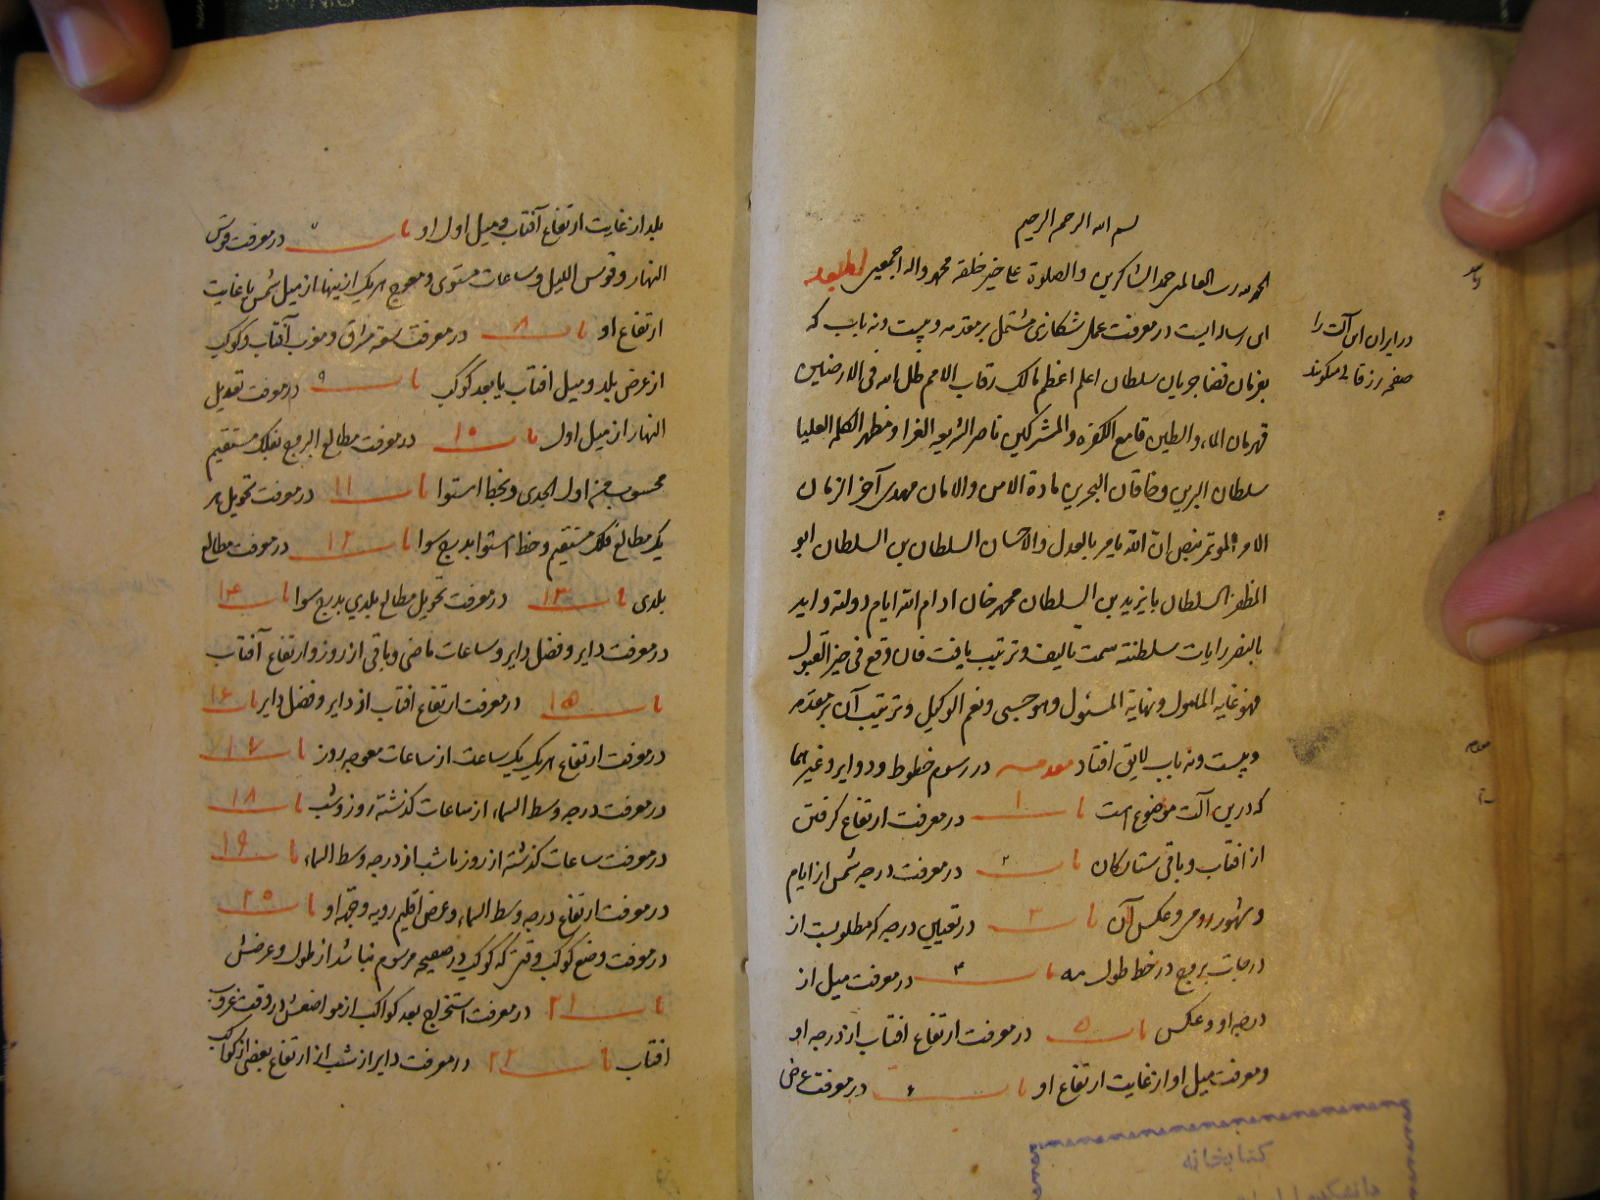 بسم الله الرحمن الرحیم
الحمد لله رب العالمین حمد الشاکرین والصلوة علی خیر خلقه محمد واله اجمعین
این رساله ایست در معرفت عمل شکازی مشتمل بر مقدمه و بیست ونه باب که
بفرمان قضا جریان سلطان اعلم اعظم مالک رقاب الامم ظل الله فی الارضین
قهرمان الماء والطین قامع الکفره والمشرکین ناصر الشریعه الغرا ومظهر الکلمه العلیا
سلطان البرین وخاقان البحرین مادة الامن والامان مهدی آخر الزمان
الامر المؤتمر بنص ان الله یامر بالعدل والاحسان السلطان بن السلطان ابو
المظفر السلطان بایزید بن السلطان محمد خان ادام الله ایام دولته واید
بالنصر رایات سلطنته سمت تالیف وترتیب یافت فان وقع فی حیز القبول
فهو غایه المامول ونهایة المسئول وهو حسبی ونعم الوکیل وترتیب آن بر مقدمه
وبیست ونه باب لایق افتاد مقدمه در رسوم خطوط ودوایر وغیرهما
که درین آلت موضوع است باب ۱ در معرفت ارتفاع کرفتن
از افتاب وباقی ستارکان باب ۲ در معرفت درجه شمس از ایام
وشهور رومی وعکس آن باب ۳ در تعیین درجه که مطلوبست از
درجات بروج در خط طول باب ۴ در معرفت میل از
درجه او وعکس باب ۵ در معرفت ارتفاع افتاب از درجه او
ومعرفت میل او از غایت ارتفاع او باب ۶ در معرفت عرض
در ایران این آلت را
صفحه زرقالی میکویند
کتابخانه
بلد از غایت ارتفاع آفتاب ومیل اول او باب ۷ در معرفت قوس
النهار وقوس اللیل وساعات مستوی ومعوج هریک ازینها از میل شمس یا غایت
ارتفاع او باب ۸ در معرفت سعة مشرق ومغرب آفتاب وکوکب
از عرض بلد ومیل افتاب یا بعد کوکب باب ۹ در معرفت تعدیل
النهار از میل اول باب ۱۰ در معرفت مطالع البروج بفلک مستقیم
محسوب من اول الجدی وبخط استوا باب ۱۱ در معرفت تحویل هر
یک مطالع فلک مستقیم وخط استوا بدرج سوا باب ۱۲ در معرفت مطالع
بلدی باب ۱۳ در معرفت تحویل مطالع بلدی بدرج سوا باب ۱۴
در معرفت دایر وفضل دایر وساعات ماضی وباقی از روز وارتفاع آفتاب
باب ۱۵ در معرفت ارتفاع افتاب از دایر وفضل دایر باب ۱۶
در معرفت ارتفاع هریک یک ساعت از ساعات معوجه روز باب ۱۷
در معرفت درجه وسط السماء از ساعات کذشته روز وشب باب ۱۸
در معرفت ساعات کذشته از روز یا شب از درجه وسط السماء باب ۱۹
در معرفت ارتفاع درجه وسط السماء وعرض اقلیم رویه وجهه او باب ۲۰
در معرفت وضع کوکب وقتی که کوکب در صفیحه مرسوم نباشد از طول وعرضش
باب ۲۱ در معرفت استخراج بعد کواکب از مواضعش در وقت غروب
افتاب باب ۲۲ در معرفت دایر از شب از ارتفاع بعضی از کواکب